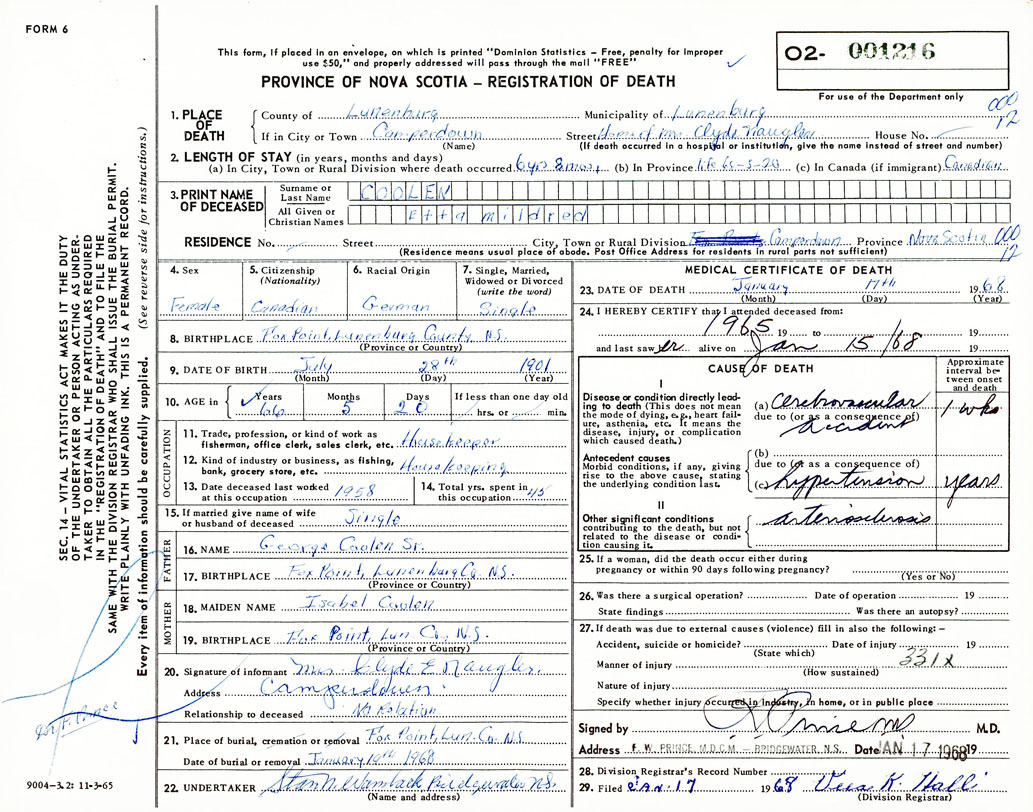 FORM 6
This form, if placed in an envelope, on which is printed "Dominion Statistics – Free, penalty for improper
use $50," and properly addressed will pass through the mail "FREE"
O2- 001216
PROVINCE OF NOVA SCOTIA – REGISTRATION OF DEATH
For use of the Department only
000
12
1. PLACE OF DEATH
County of Lunenburg Municipality of Lunenburg
If in City or Town Camperdown Street Home of Mrs. Clyde Naugler House No.
(Name) (If death occurred in a hospital or institution, give the name instead of street and number)
2. LENGTH OF STAY (in years, months and days)
(a) In City, Town or Rural Division where death occurred 6 yrs 8 mos. (b) In Province life 65-5-20 (c) In Canada (if immigrant) Canadian
3. PRINT NAME OF DECEASED
Surname or Last Name COOLEN
All Given or Christian Names Etta mildred
RESIDENCE No. Street City, Town or Rural Division Camperdown Province Nova Scotia
000
12
(Residence means usual place of abode. Post Office Address for residents in rural parts not sufficient)
SEC. 14 – VITAL STATISTICS ACT MAKES IT THE DUTY
OF THE UNDERTAKER OR PERSON ACTING AS UNDER-
TAKER TO OBTAIN ALL THE PARTICULARS REQUIRED
IN THE "REGISTRATION OF DEATH" AND TO FILE THE
SAME WITH THE DIVISION REGISTRAR WHO SHALL ISSUE THE BURIAL PERMIT.
WRITE PLAINLY WITH UNFADING INK. THIS IS A PERMANENT RECORD.
Every item of information should be carefully supplied. (See reverse side for instructions.)
4. Sex
Female
5. Citizenship
(Nationality)
Canadian
6. Racial Origin
German
7. Single, Married,
Widowed or Divorced
(write the word)
Single
8. BIRTHPLACE Fox Point, Lunenburg County N.S.
(Province or Country)
9. DATE OF BIRTH July 28th 1901
(Month) (Day) (Year)
10. AGE in Years 66 Months 5 Days 20 If less than one day old
hrs. or min.
OCCUPATION
11. Trade, profession, or kind of work as
fisherman, office clerk, sales clerk, etc. Housekeeper
12. Kind of industry or business, as fishing,
bank, grocery store, etc. Housekeeping
13. Date deceased last worked
at this occupation 1958
14. Total yrs. spent in
this occupation 45
15. If married give name of wife
or husband of deceased Single
FATHER
16. NAME George Coolen Sr.
17. BIRTHPLACE Fox Point, Lunenburg Co. N.S.
(Province or Country)
MOTHER
18. MAIDEN NAME Isabel Coolen
19. BIRTHPLACE Fox Point, Lun. Co., N.S.
(Province or Country)
20. Signature of informant Mrs. Clyde E Naugler.
Address Camperdown.
Relationship to deceased No Relation
21. Place of burial, cremation or removal Fox Point, Lun. Co. N.S.
Date of burial or removal January 19th 1968
22. UNDERTAKER Bridgewater N.S.
(Name and address)
Dr. F. Prince
9004-3.2: 11-3-65
MEDICAL CERTIFICATE OF DEATH
23. DATE OF DEATH January 17th 1968
(Month) (Day) (Year)
24. I HEREBY CERTIFY that I attended deceased from:
1965 19 to 19
and last saw er alive on Jan 15/68 19
CAUSE OF DEATH
Approximate
interval be-
tween onset
and death
I
Disease or condition directly lead-
ing to death (This does not mean
the mode of dying, e.g., heart fail-
ure, asthenia, etc. It means the
disease, injury, or complication
which caused death.)
(a) Cerebrovascular
due to (or as a consequence of)
accident
1 wk
Antecedent causes
Morbid conditions, if any, giving
rise to the above cause, stating
the underlying condition last.
(b)
due to (or as a consequence of)
(c) hypertension years
II
Other significant conditions
contributing to the death, but not
related to the disease or condi-
tion causing it.
arteriosclerosis
25. If a woman, did the death occur either during
pregnancy or within 90 days following pregnancy?
(Yes or No)
26. Was there a surgical operation? Date of operation 19
State findings Was there an autopsy?
27. If death was due to external causes (violence) fill in also the following: –
Accident, suicide or homicide? Date of injury 19
(State which)
331X
Manner of injury
(How sustained)
Nature of injury
Specify whether injury occurred in Industry, in home, or in public place
Signed by M.D.
Address F. W. PRINCE M.D.C.M – BRIDGEWATER, N.S. Date JAN 17 1968 19
28. Division Registrar's Record Number
29. Filed Jan. 17 1968 Vera K. Hall
(Division Registrar)